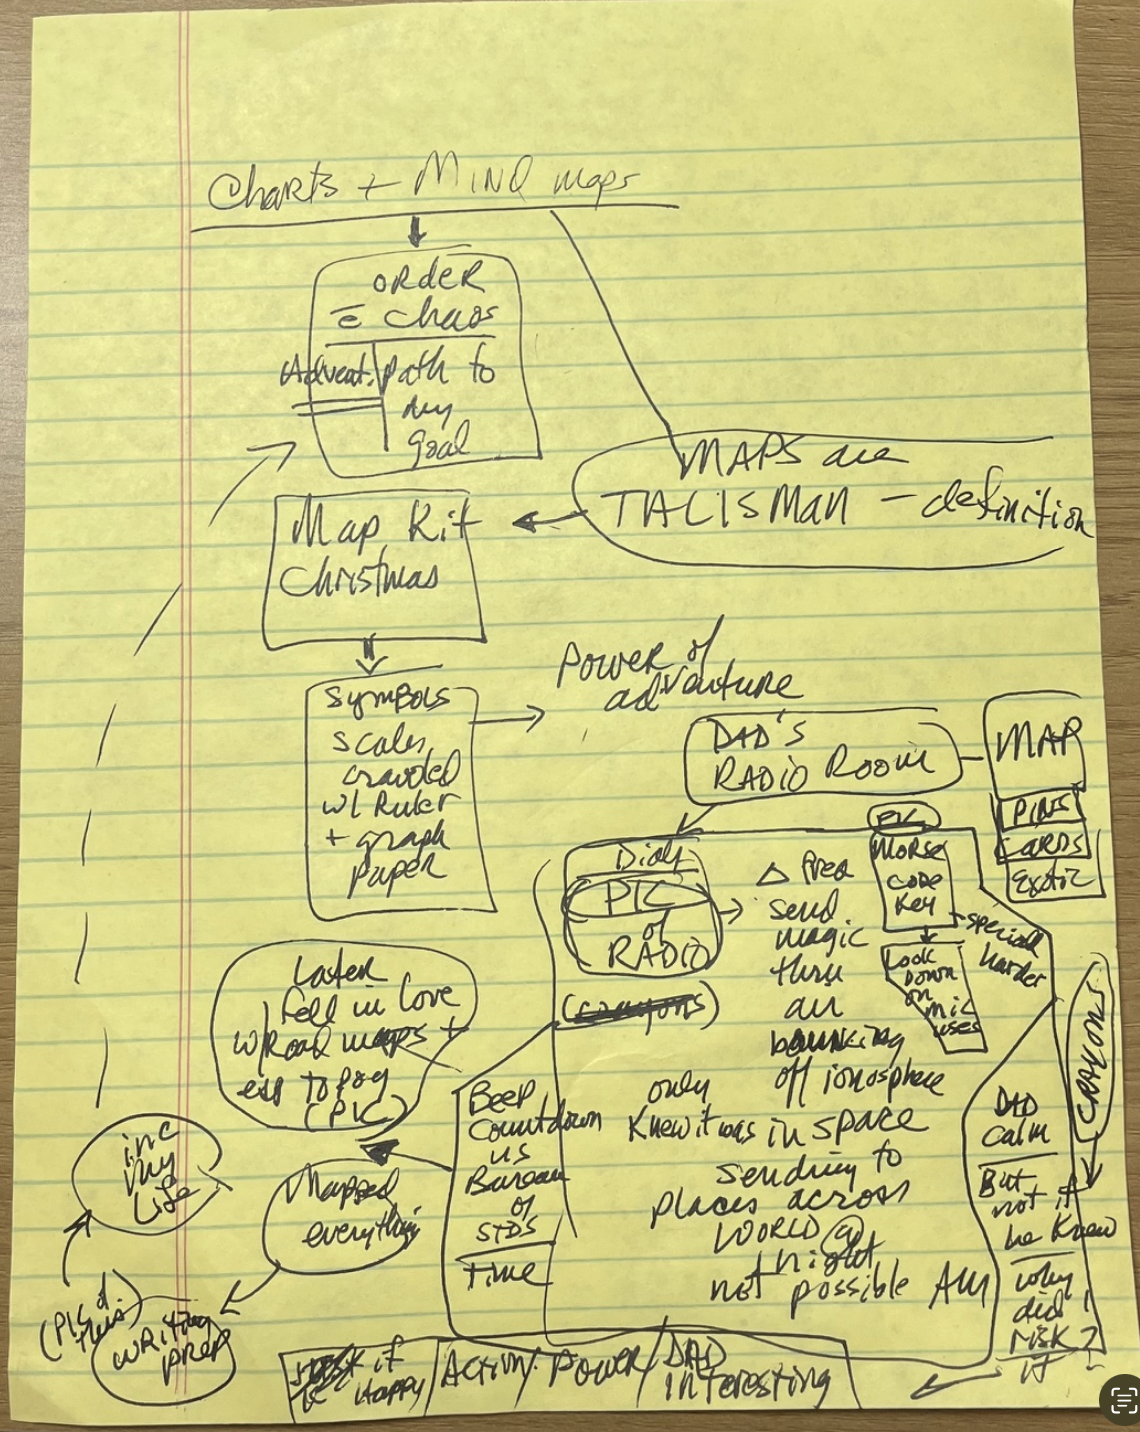 Charts + Mind maps
ORDER
c̄ chaos
Advent. path to
my
goal
MAPS are
TALISMAN - definition
Map Kit
Christmas
Symbols
scales
crowded
w/ Ruler
+ graph
paper
Power of
adventure
DAD'S
RADIO ROOM
MAP
PINS
CARDS
Exotic
Dials
PIC
of
RADIO
(crayons)
Δ Freq
send
magic
thru
air
bouncing
off ionosphere
only
Knew it was in space
sending to
places across
WORLD @
night
not possible AM
PIC
Morse
code
key
special
harder
Look
Down
on
mic
uses
CRAYONS
DAD
calm
But
not if
he Knew
why
did I
RISK ?
it
Later
fell in love
w/Road maps +
esp topog
(PIC)
Beep
Countdown
US
Bureau
of
STDS
Time
Mapped
everything
inc
my
Life
(PIC of
this)
writing
prep
if
Happy
Activ/ Power/ DAD
interesting